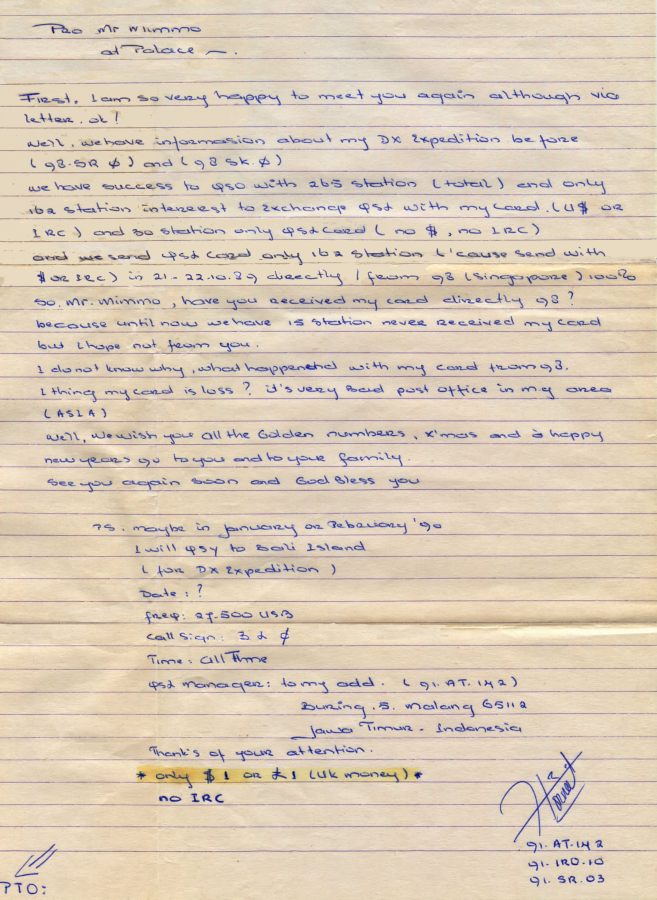 Pro Mr Mimmo
at Palace ~.
First. I am so very happy to meet you again although via
letter. ok!
Well. we have informasion about my DX Expedition before
(93.SR Ø) and (93 SK.Ø)
we have success to QSO with 265 station (total) and only
162 station interest to Exchange QSL with my card. (U$ OR
IRC) and 30 station only QSL card (no $, no IRC)
and we send QSL card only 162 station ('cause send with
$ OR IRC) in 21-22.10.89 directly / from 93 (Singapore) 100%
So. Mr. Mimmo, have you received my card directly 93?
because until now we have 15 station never received my card
but I hope not from you.
I do not know why, what happened with my card from 93.
I thing my card is loss? it's very bad post office in my area
(ASIA)
Well, we wish you all the Golden numbers, x'mas and a happy
new years 90 to you and to your family.
See you again soon and God Bless you
PS. maybe in January or February '90
I will QSY to Bali Island
(for DX Expedition)
Date: ?
freq: 27.500 USB
call sign: 3 L Ø
Time: all Time
QSL manager: to my add. (91.AT.142)
Buring. 5. Malang 65112
Jawa Timur - Indonesia
Thank's of your attention.
* only $1 or £1 (UK money) *
no IRC
91.AT.142
91.IRO.10
91.SR.03
PTO: